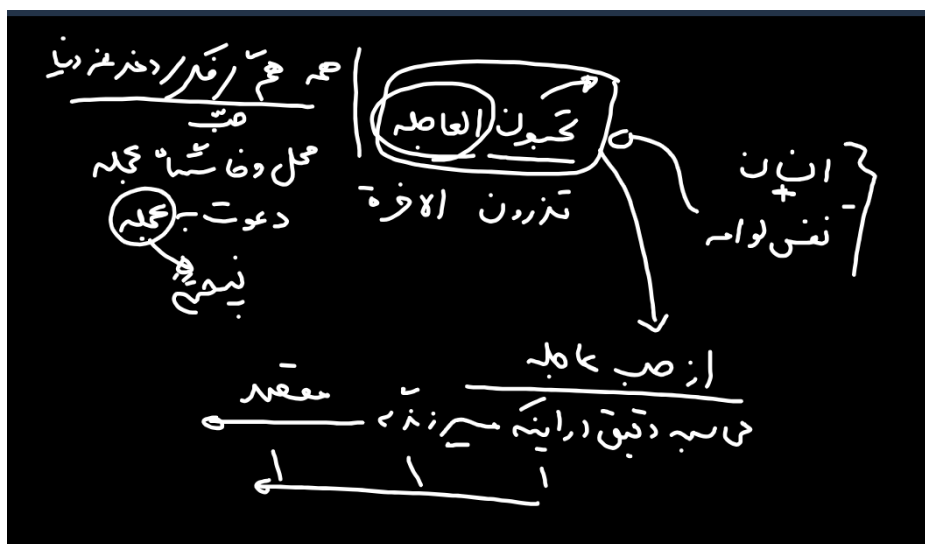 همه همّ / فکر / دغدغه دنیا
حبّ
محل وفا شما عجله
دعوت به عجله
نتیجه
تحبون العاجله
تذرون الاخرة
انسان
+
نفس لوامه
از حب عاجله
محاسبه دقیق در اینکه مسیر زندگی مقصد